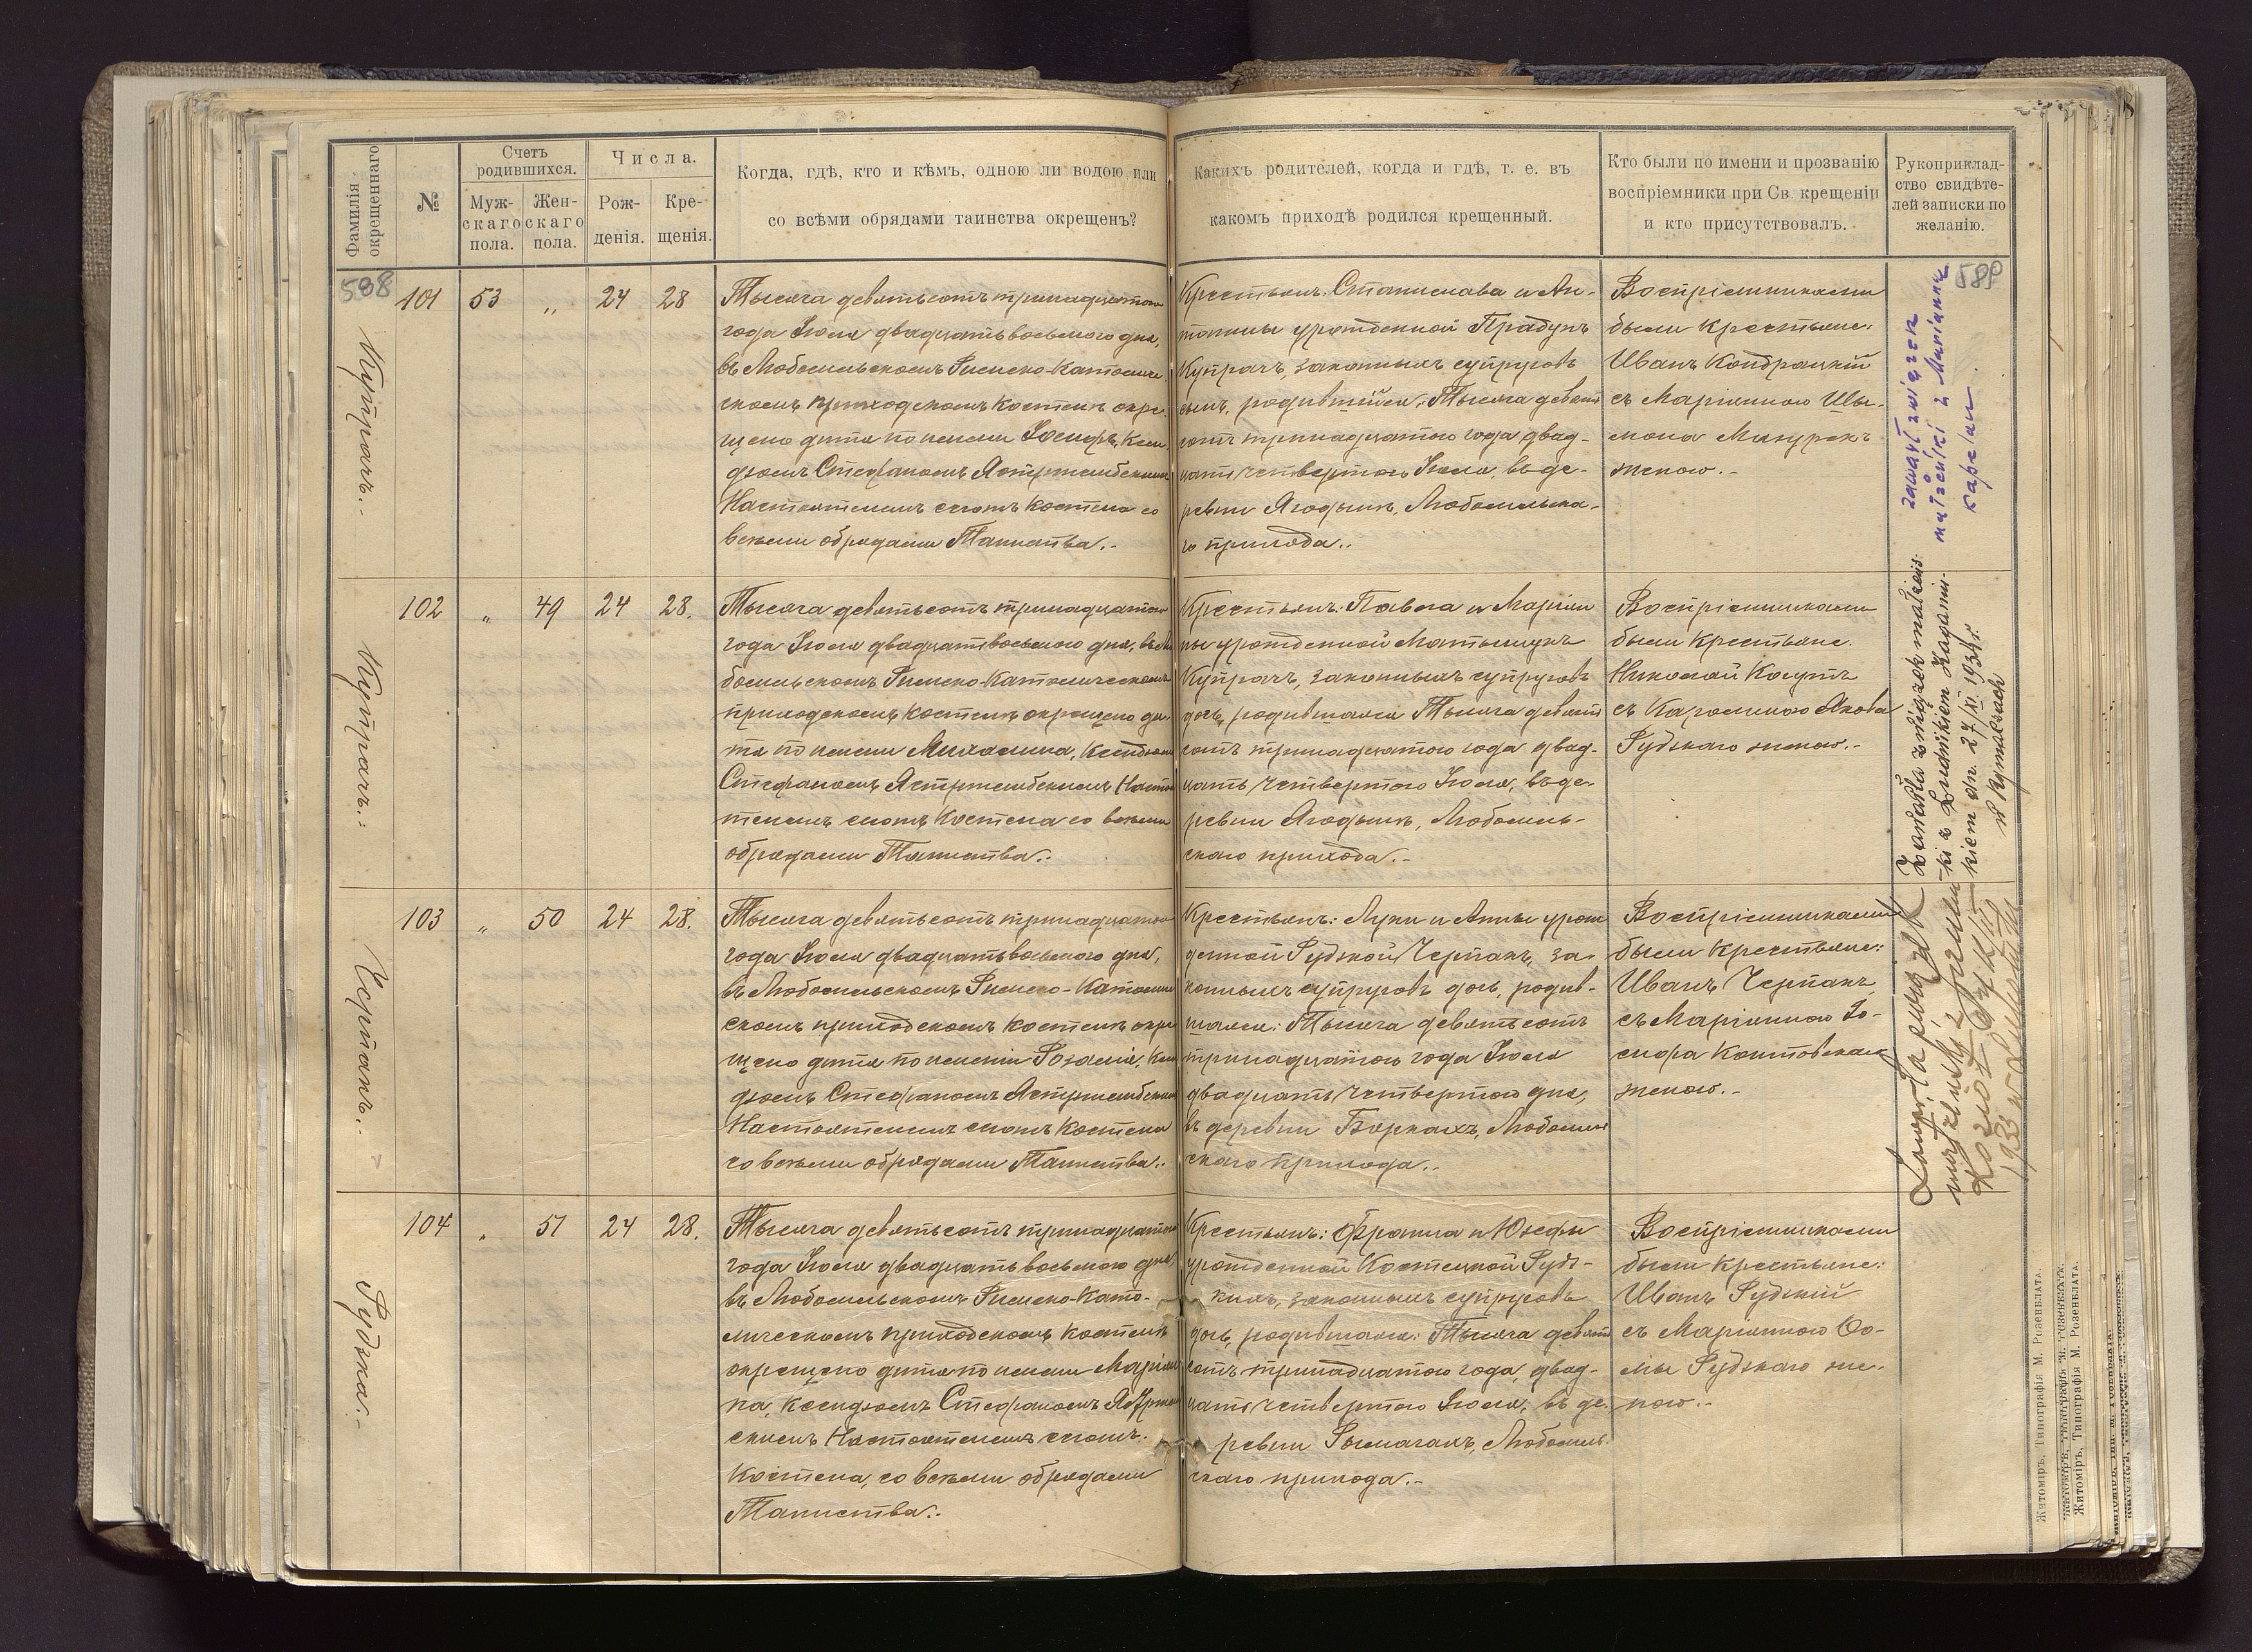 Фамилія окрещеннаго
№
Счетъ родившихся.
Муж-
скаго
пола.
Жен-
скаго
пола.
Числа.
Рож-
денія.
Кре-
щенія.
Когда, гдѣ, кто и кѣмъ, одною ли водою или
со всѣми обрядами таинства окрещенъ?
Какихъ родителей, когда и гдѣ, т. е. въ
какомъ приходѣ родился крещенный.
Кто были по имени и прозванію
воспріемники при Св. крещеніи
и кто присутствовалъ.
Рукоприклад-
ство свидѣте-
лей записки по
желанію.
588
101 53 „ 24 28
Тысяча девятьсотъ тринадцатого
года Іюля двадцать восьмого дня,
въ Любомльскомъ Римско-Католиче
скомъ приходскомъ костелѣ окре-
щено дитя по имени Іосифъ, Ксен-
дзомъ Стефаномъ Ястржембскимъ
Настоятелемъ сего костела со
всѣми обрядами Таинства.
Крестьянъ: Станислава и Ан-
тонины урожденной Прадунъ
Купрачъ, законныхъ супруговъ
сынъ, родившійся: Тысяча девять
сотъ тринадцатого года двад-
цать четвертого Іюля, въ де-
ревни Ягодынъ, Любомльска-
го прихода.
Воспріемниками
были крестьяне:
Иванъ Кондрацкій
съ Маріанною
Мазурекъ
женою.
zawarł związek
małżeński z Marianną
Kapelan
102 „ 49 24 28.
Купрачъ.
Тысяча девятьсотъ тринадцатого
года Іюля двадцать восьмого дня, въ Лю
бомльскомъ Римско-Католическомъ
приходскомъ костелѣ окрещено ди-
тя по имени Михалина, Ксендзомъ
Стефаномъ Ястржембскимъ Насто
телемъ сего Костела со всѣми
обрядами Таинства.
Крестьянъ: Павла и Марiан
ны урожденной Матыщукъ
Купрачъ, законныхъ супруговъ
дочь, родившаяся Тысяча девять
сотъ тринадцатого года двад-
цать четвертого Іюля, въ де-
ревни Ягодынъ, Любомль-
скаго прихода.
Воспріемниками
были Крестьяне:
Николай Когутъ
съ Каролиною Якова
Рудзкаго женою.
Zawarła związek małżeńs-
ki z Ludwikiem
kiem dn. 27/XI 1934 r.
w Rymaczach
103 „ 50 24 28.
Черпакъ.
Тысяча девятьсотъ тринадцатого
года Іюля двадцать восьмого дня,
въ Любомльскомъ Римско-Католиче
скомъ приходскомъ костелѣ окре
щено дитя по имени Розалія, Ксен
дзомъ Стефаномъ Ястржембскимъ
Настоятелемъ сего Костела
со всѣми обрядами Таинства.
Крестьянъ: Луки и Анны урож
денной Рудзкой Черпакъ, за-
конныхъ супруговъ дочь, родив-
шаяся: Тысяча девятьсотъ
тринадцатого года Іюля
двадцать четвертого дня,
въ деревни Боркахъ, Любомль
скаго прихода.
Воспріемниками
были Крестьяне:
Иванъ Черпакъ
съ Маріанною Іо-
сифа Колтовскаго
женою.
małżeński z
1933 w
104 „ 51 24 28.
Рудзка.
Тысяча девятьсотъ тринадцатого
года Іюля двадцать восьмого дня
въ Любомльскомъ Римско-Като-
лическомъ приходскомъ костелѣ
окрещено дитя по имени Маріан
на, Ксендзомъ Стефаномъ Ястржемб
скимъ Настоятелемъ сего
Костела, со всѣми обрядами
Таинства.
Крестьянъ: Франца и Юзефы
урожденной Костецкой Рудз-
кихъ, законныхъ супруговъ
дочь, родившаяся: Тысяча девять
сотъ тринадцатого года, двад-
цать четвертого Іюля, въ де-
ревни Рымачахъ, Любомль
скаго прихода.
Воспріемниками
были Крестьяне:
Иванъ Рудзкій
съ Маріанною Ѳо-
мы Рудзкаго же-
ною.
Житоміръ, Типографія М. Розенблата.
Житоміръ, Типографія М. Розенблата.